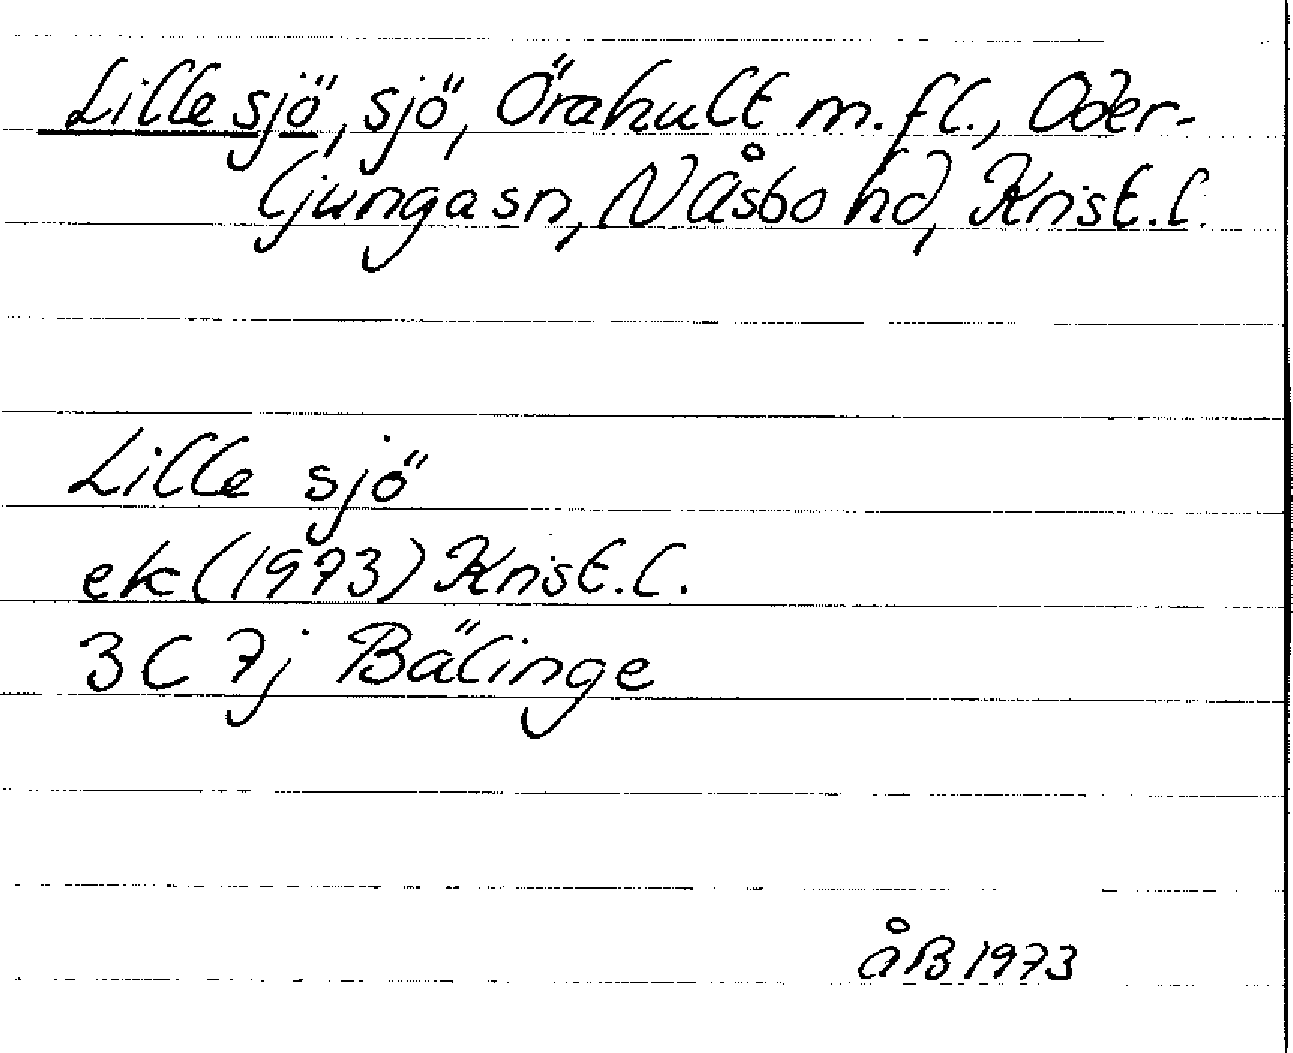 Lille sjö, sjö, Örahult m.fl., Oder-
ljunga sn, N Åsbo hd, Krist.l.
Lille sjö
ek (1973) Krist.l.
3C 7j Bälinge
åB 1973